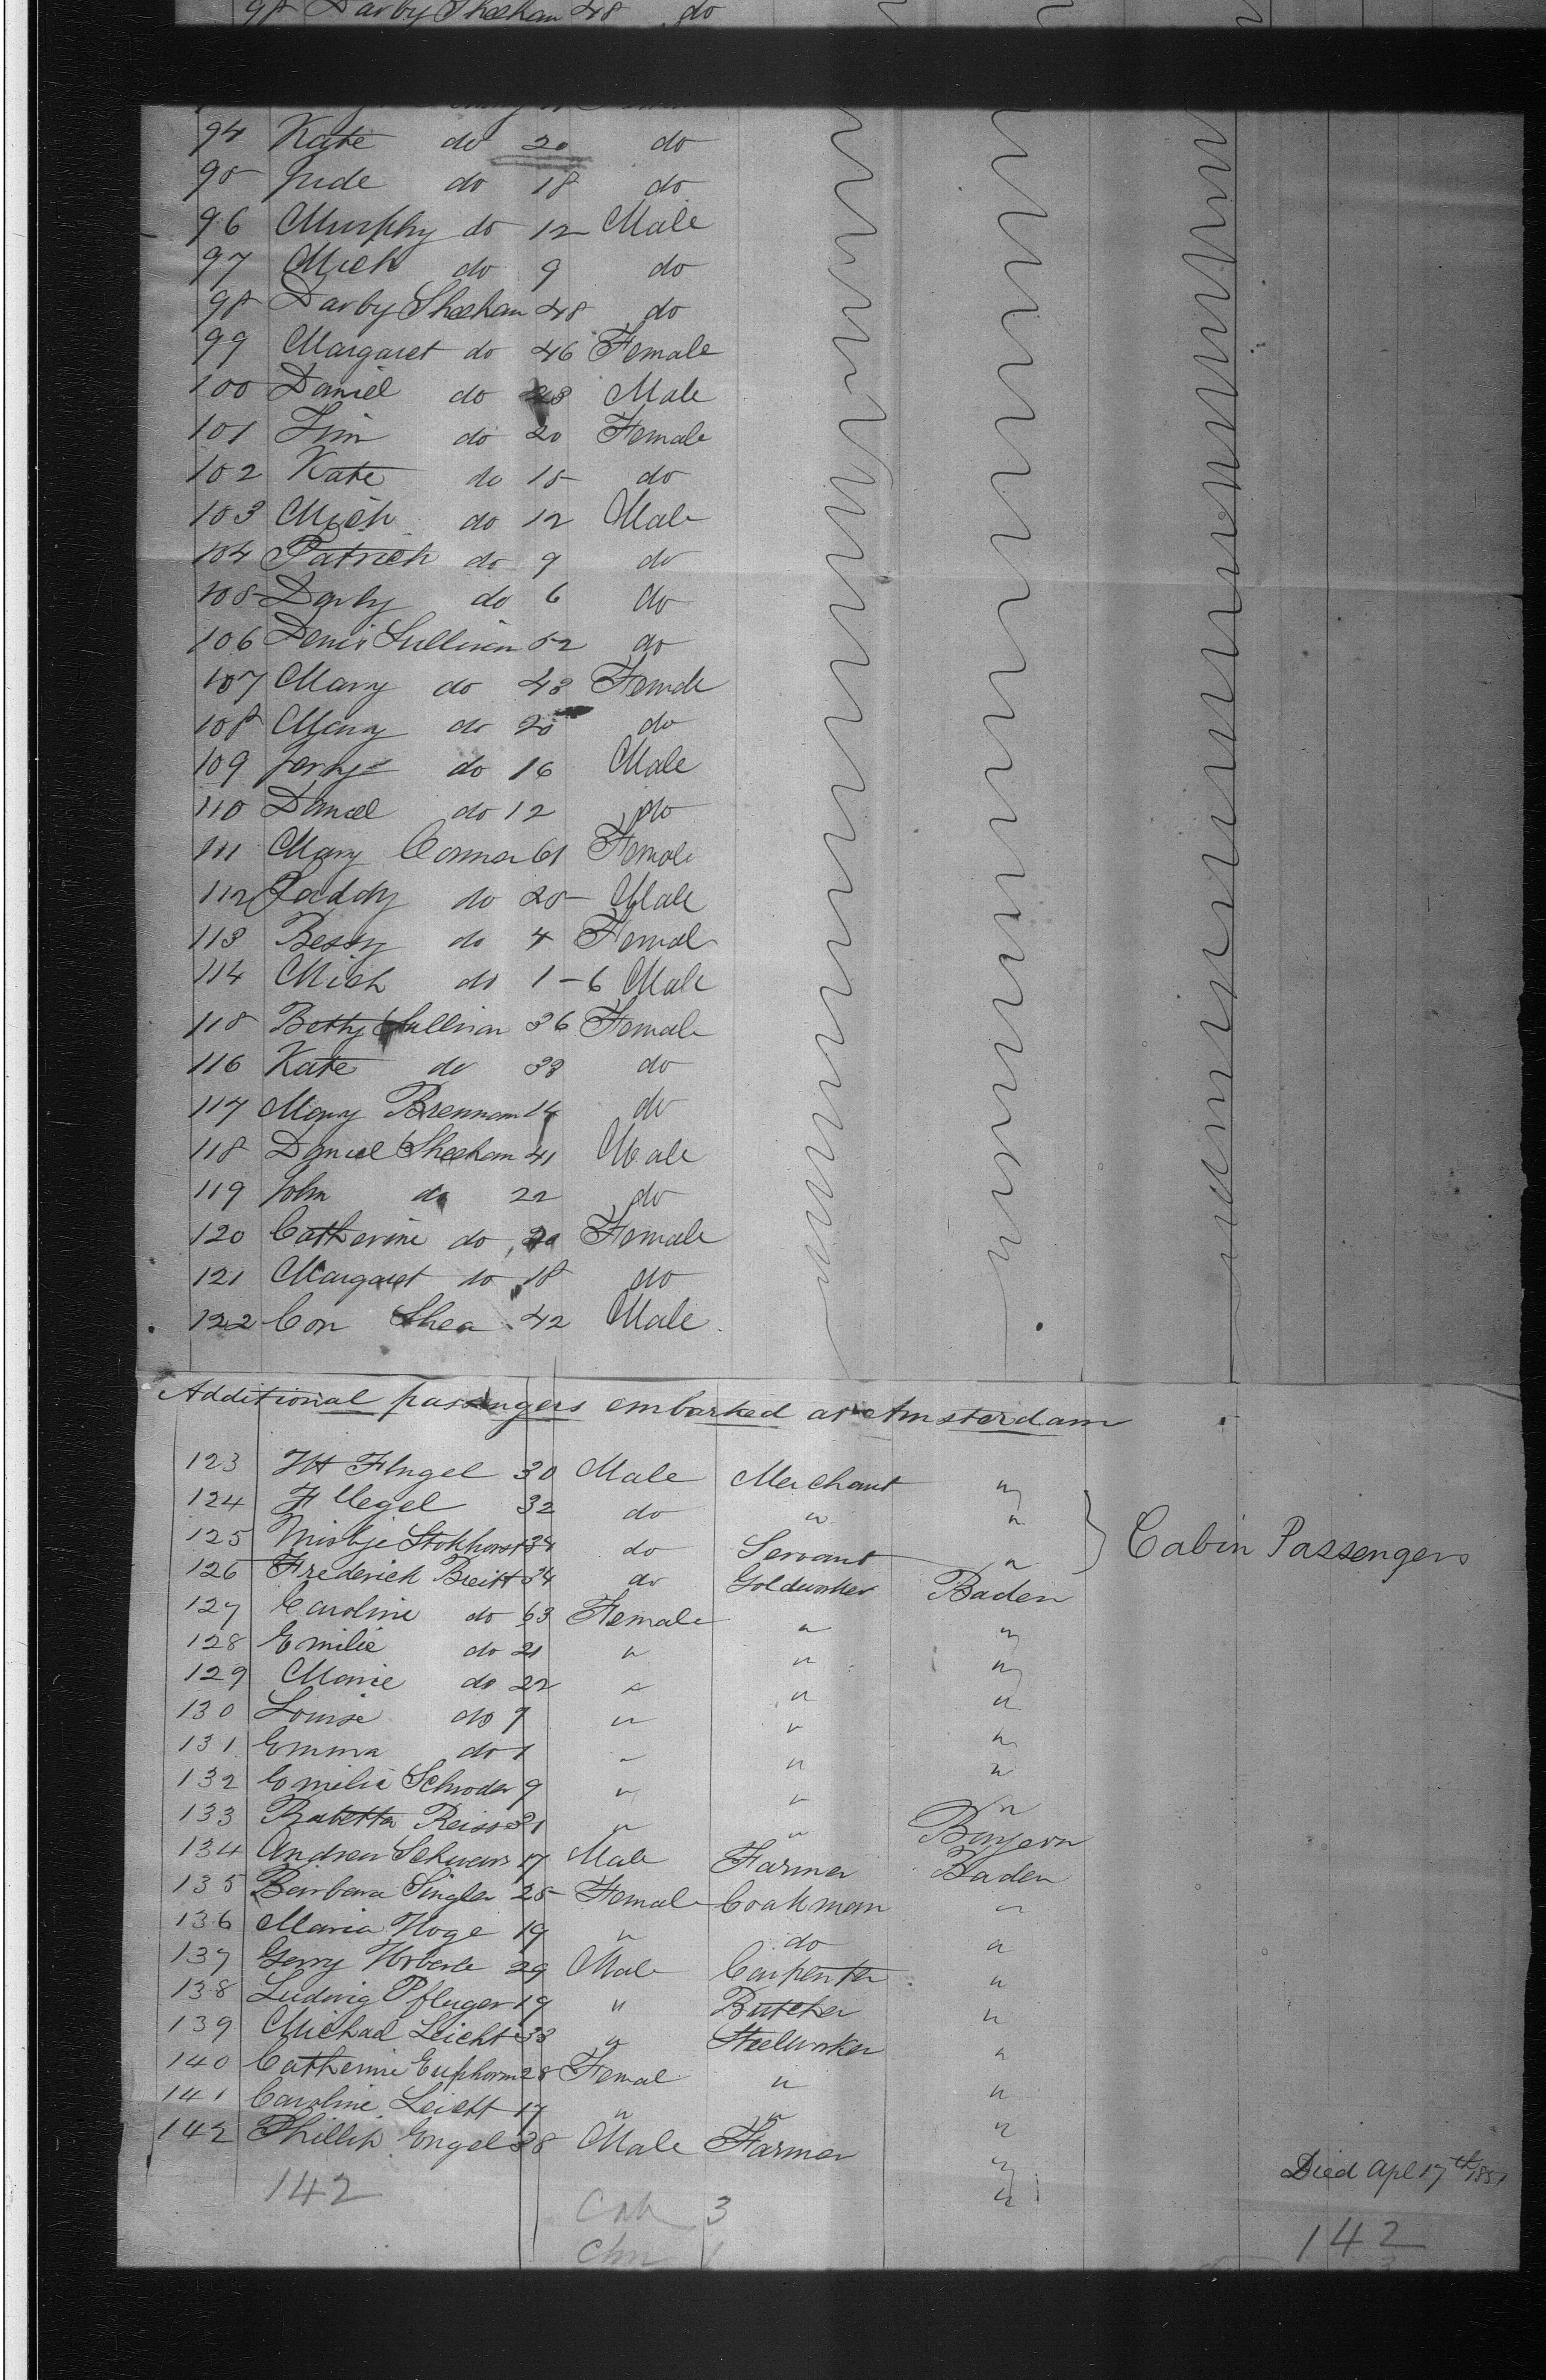 98 Darby Sheehan 48 do
94 Kate do 20 do
95 Jude do 18 do
96 Murphy do 12 Male
97 Mich do 9 do
98 Darby Sheehan 48 do
99 Margaret do 46 Female
100 Daniel do 23 Male
101 Jim do 20 Female
102 Kate do 15 do
103 Mich do 12 Male
104 Patrick do 9 do
105 Darby do 6 do
106 Denis Sullivan 52 do
107 Mary do 43 Female
108 Mary do 20 do
109 Jerry do 16 Male
110 Daniel do 12 do
111 Mary Connor 61 Female
112 Paddy do 25 Male
113 Bessy do 4 Femal
114 Mich do 1-6 Male
115 Betty Sullivan 36 Female
116 Kate do 33 do
117 Mary Brennan 14 do
118 Daniel Sheehan 41 Male
119 John do 22 do
120 Catherine do 20 Female
121 Margaret do 18 do
122 Con Shea 42 Male
Additional passengers embarked at Amsterdam
123 Flugel 30 Male Merchant "
124 F Uegel 32 do " "
125 Stokhorst 34 do Servant " Cabin Passengers
126 Frederick Breitt 34 do Goldworker Baden
127 Caroline do 63 Female " "
128 Emilie do 21 " " "
129 Marie do 22 " " "
130 Louise do 9 " " "
131 Emma do 1 " " "
132 Emilie Schroder 9 " " "
133 Babetta Reiss 31 " " Bayern
134 Andreu 17 Male Farmer Baden
135 Barbara Singler 25 Female Coakman "
136 Maria Hoge 19 " do "
137 Gerry 29 Male Carpenter "
138 Ludwig Pfluger 19 " Butcher "
139 Michael Leicht 33 " Steelworker "
140 Catherine 28 Femal " "
141 Caroline Leicht 17 " " "
142 Phillip Engel 38 Male Farmer " Died Apl 17th 1851
142 Cab 3 142